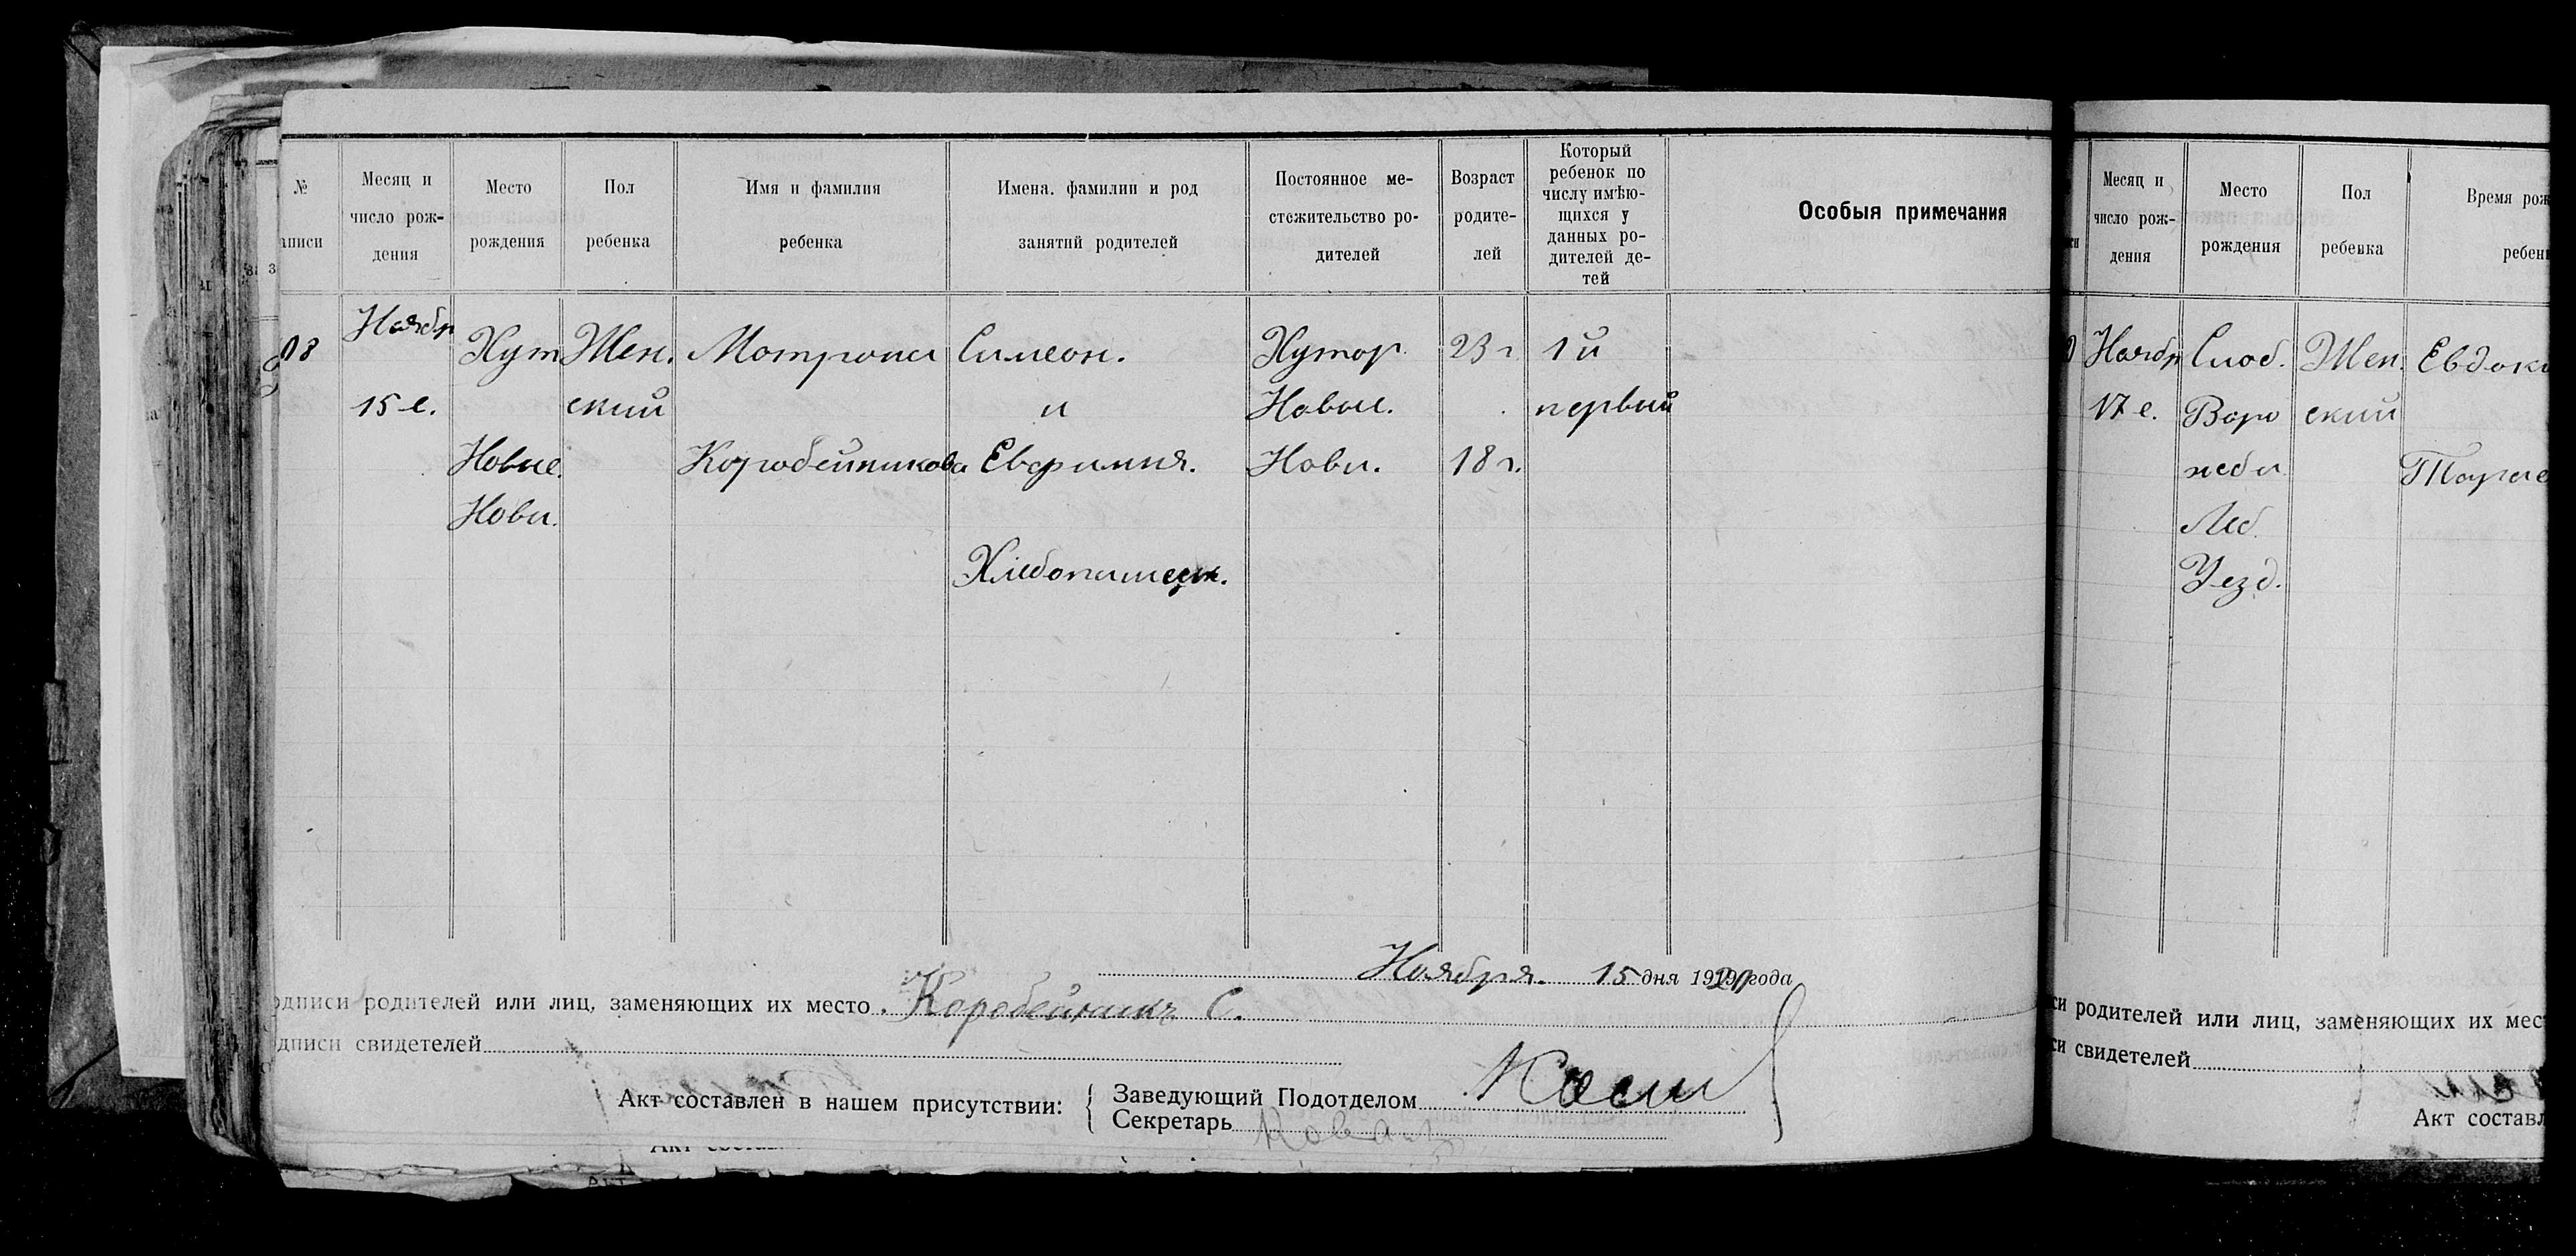 №
аписи
Месяц и
число рож-
дения
Место
рождения
Пол
ребенка
Имя и фамилия
ребенка
Имена. фамилии и род
занятий родителей
Постоянное ме-
стожительство ро-
дителей
Возраст
родите-
лей
Который
ребенок по
числу имѣю-
щихся у
данных ро-
дителей де-
тей
Особыя примечания
18
Ноябр
15 е.
Хут
Новые.
Нови.
Жен.
ский
Матрона
Коробейникова
Симеон.
и
Евфимия.
Хлебопашец.
Хутор
Новые.
Нови.
23 г
18 г.
1й
первый
Ноября. 15 дня 1920 года
одписи родителей или лиц, заменяющих их место. Коробейникъ С.
дписи свидетелей
Акт составлен в нашем присутствии:
Заведующий Подотделом
Секретарь
Месяц и
число рож-
дения
Место
рождения
Пол
ребенка
Время рож
ребен
Ноябр
17 е.
Слоб.
Леб.
Уезд.
Жен.
ский
Евдоки
си родителей или лиц, заменяющих их мес
си свидетелей
Акт составл